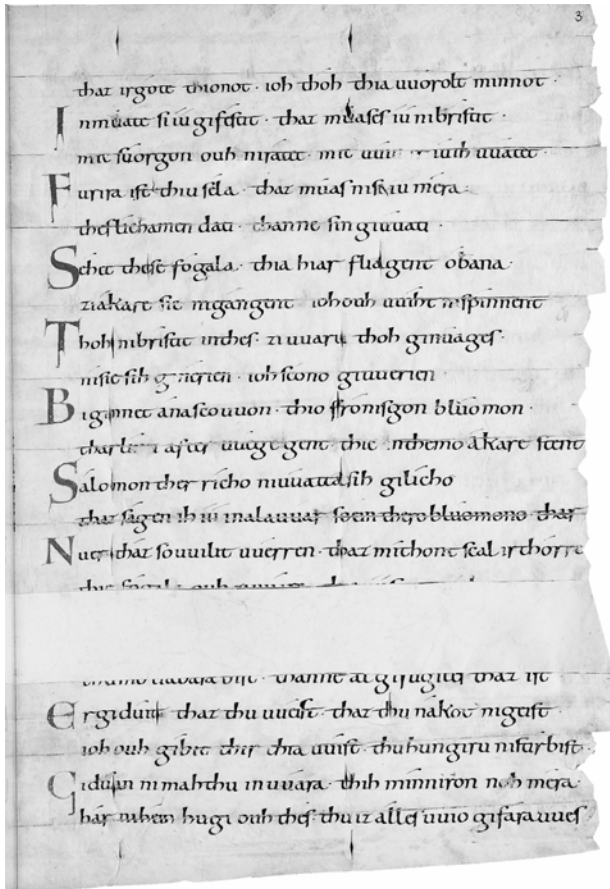 3
thaz ir gote thionot · ioh thoh thia uuorolt minnot ·
I nmuate si iu gifestit · thaz muases iu nibristit ·
mit suorgon ouh niratet · mit iuih uuatet ·
F urira ist thiu sela · thaz muas nist iu mera ·
thes lichamen dati · thanne sin giuuati ·
S ehet these fogala · thia hiar fliagent obana ·
zi akare sie nigangent · ioh ouh uuiht nispinnent
T hoh nibristit in thes · zi uuaru thoh ginuages ·
nisie sih ginerien · ioh scono giuuerien
B iginnet anascouuon · thio fronisgon bluomon ·
thar liuti after uuege gent · thie in themo akare stent
S alomon ther richo niuuatta sih gilicho
thaz sagen ih iu in alauuar so ein thero bluomono thar
N u er thaz so uuilit uuerren · thaz mithont scal irthorren
thie fogala ouh
thanne al gifugitaz thaz ist
E rgiduat thaz thu uueist · thaz thu nakot nigeist ·
ioh ouh gibit thir thia uuist · thu hungiru nistirbist ·
G iduan ni maht thu in uuara · thih minniron noh mera ·
har hugi ouh thes · thu iz alles uuio gifarauues